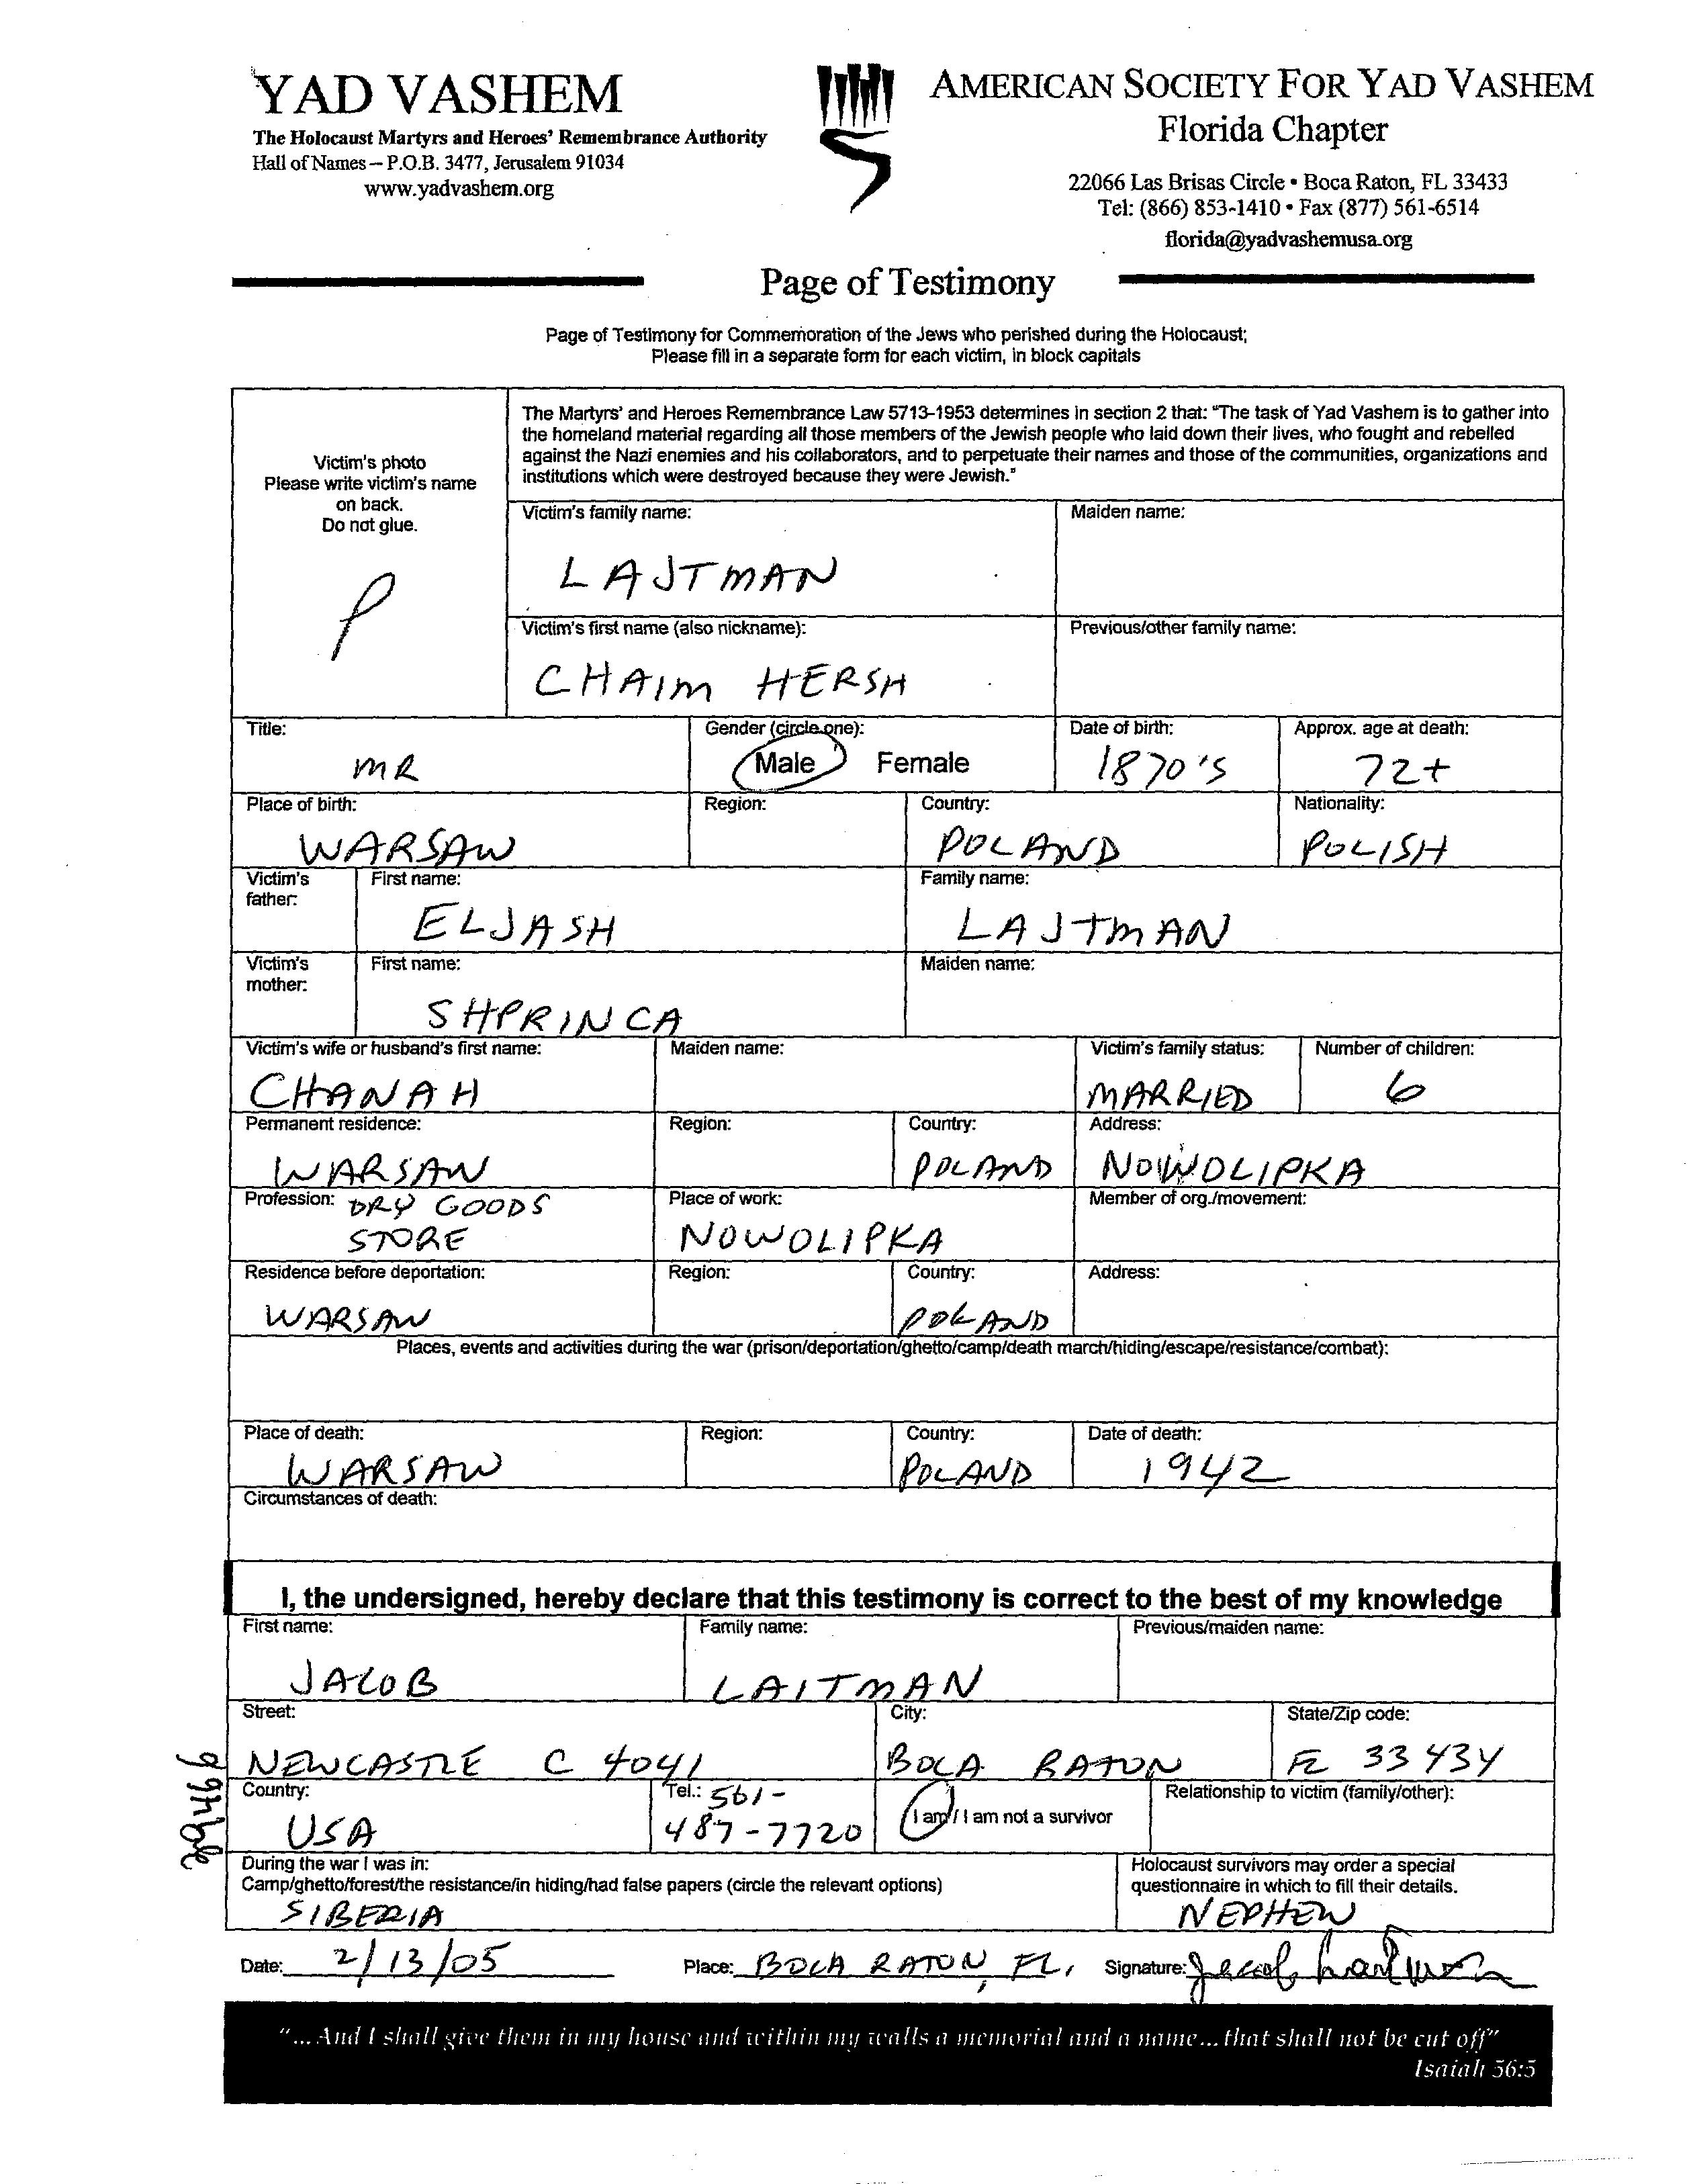 YAD VASHEM
The Holocaust Martyrs and Heroes' Remembrance Authority
Hall of Names – P.O.B. 3477, Jerusalem 91034
www.yadvashem.org
AMERICAN SOCIETY FOR YAD VASHEM
Florida Chapter
22066 Las Brisas Circle • Boca Raton, FL 33433
Tel: (866) 853-1410 • Fax (877) 561-6514
florida@yadvashemusa.org
Page of Testimony
Page of Testimony for Commemoration of the Jews who perished during the Holocaust;
Please fill in a separate form for each victim, in block capitals
Victim's photo
Please write victim's name
on back.
Do not glue.
The Martyrs' and Heroes Remembrance Law 5713-1953 determines in section 2 that: "The task of Yad Vashem is to gather into
the homeland material regarding all those members of the Jewish people who laid down their lives, who fought and rebelled
against the Nazi enemies and his collaborators, and to perpetuate their names and those of the communities, organizations and
institutions which were destroyed because they were Jewish."
Victim's family name: Maiden name:
LAJTMAN
Victim's first name (also nickname): Previous/other family name:
CHAIM HERSH
Title: Gender (circle one): Date of birth: Approx. age at death:
MR Male Female 1870'S 72+
Place of birth: Region: Country: Nationality:
WARSAW POLAND POLISH
Victim's father: First name: Family name:
ELJASH LAJTMAN
Victim's mother: First name: Maiden name:
SHPRINCA
Victim's wife or husband's first name: Maiden name: Victim's family status: Number of children:
CHANAH MARRIED 6
Permanent residence: Region: Country: Address:
WARSAW POLAND NOWOLIPKA
Profession: DRY GOODS Place of work: Member of org./movement:
STORE NOWOLIPKA
Residence before deportation: Region: Country: Address:
WARSAW POLAND
Places, events and activities during the war (prison/deportation/ghetto/camp/death march/hiding/escape/resistance/combat):
Place of death: Region: Country: Date of death:
WARSAW POLAND 1942
Circumstances of death:
I, the undersigned, hereby declare that this testimony is correct to the best of my knowledge
First name: Family name: Previous/maiden name:
JACOB LAITMAN
Street: City: State/Zip code:
NEWCASTLE C 4041 BOCA RATON FL 33434
Country: Tel.: 561- I am / I am not a survivor Relationship to victim (family/other):
USA 487-7720
During the war I was in: Holocaust survivors may order a special
Camp/ghetto/forest/the resistance/in hiding/had false papers (circle the relevant options) questionnaire in which to fill their details.
SIBERIA NEPHEW
Date: 2/13/05 Place: BOCA RATON, FL, Signature: Jacob Laitman
"... And I shall give them in my house and within my walls a memorial and a name... that shall not be cut off"
Isaiah 56:5